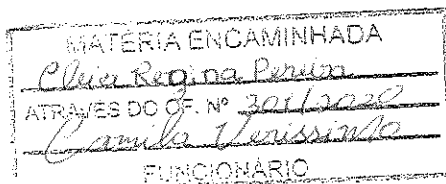 MATÉRIA ENCAMINHADA
Regina Pereira
ATRAVÉS DO OF. Nº 301/2020
Camila Verissimo
FUNCIONÁRIO